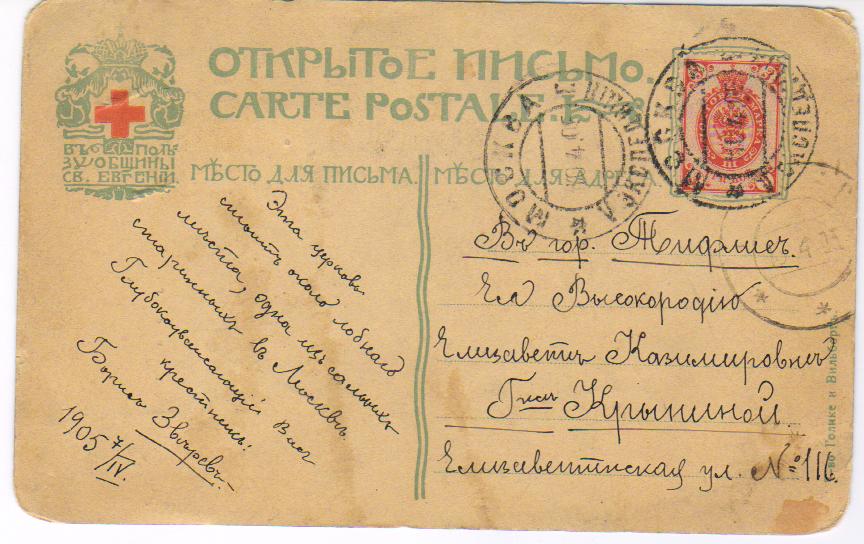 ОТКРЫТОЕ ПИСЬМО.
CARTE POSTALE.
ВЪ ПОЛЬ
ЗУ ОБЩИНЫ
СВ. ЕВГЕНІИ.
МѢСТО ДЛЯ ПИСЬМА.
МѢСТО ДЛЯ АДРЕСА.
Эта церковь
стоитъ около лобнаго
мѣста, одна изъ самыхъ
старинныхъ въ Москвѣ.
Глубокоуважающій Васъ
крестникъ:
Борисъ Звѣревъ.
1905 7/IV.
МОСКВА
МОСКВА
Въ гор. Тифлисъ.
Ея Высокородію
Елизаветѣ Казимировнѣ
Гжѣ Крыниной
Елизаветинская ул. № 116.
Голике и Вильборгъ